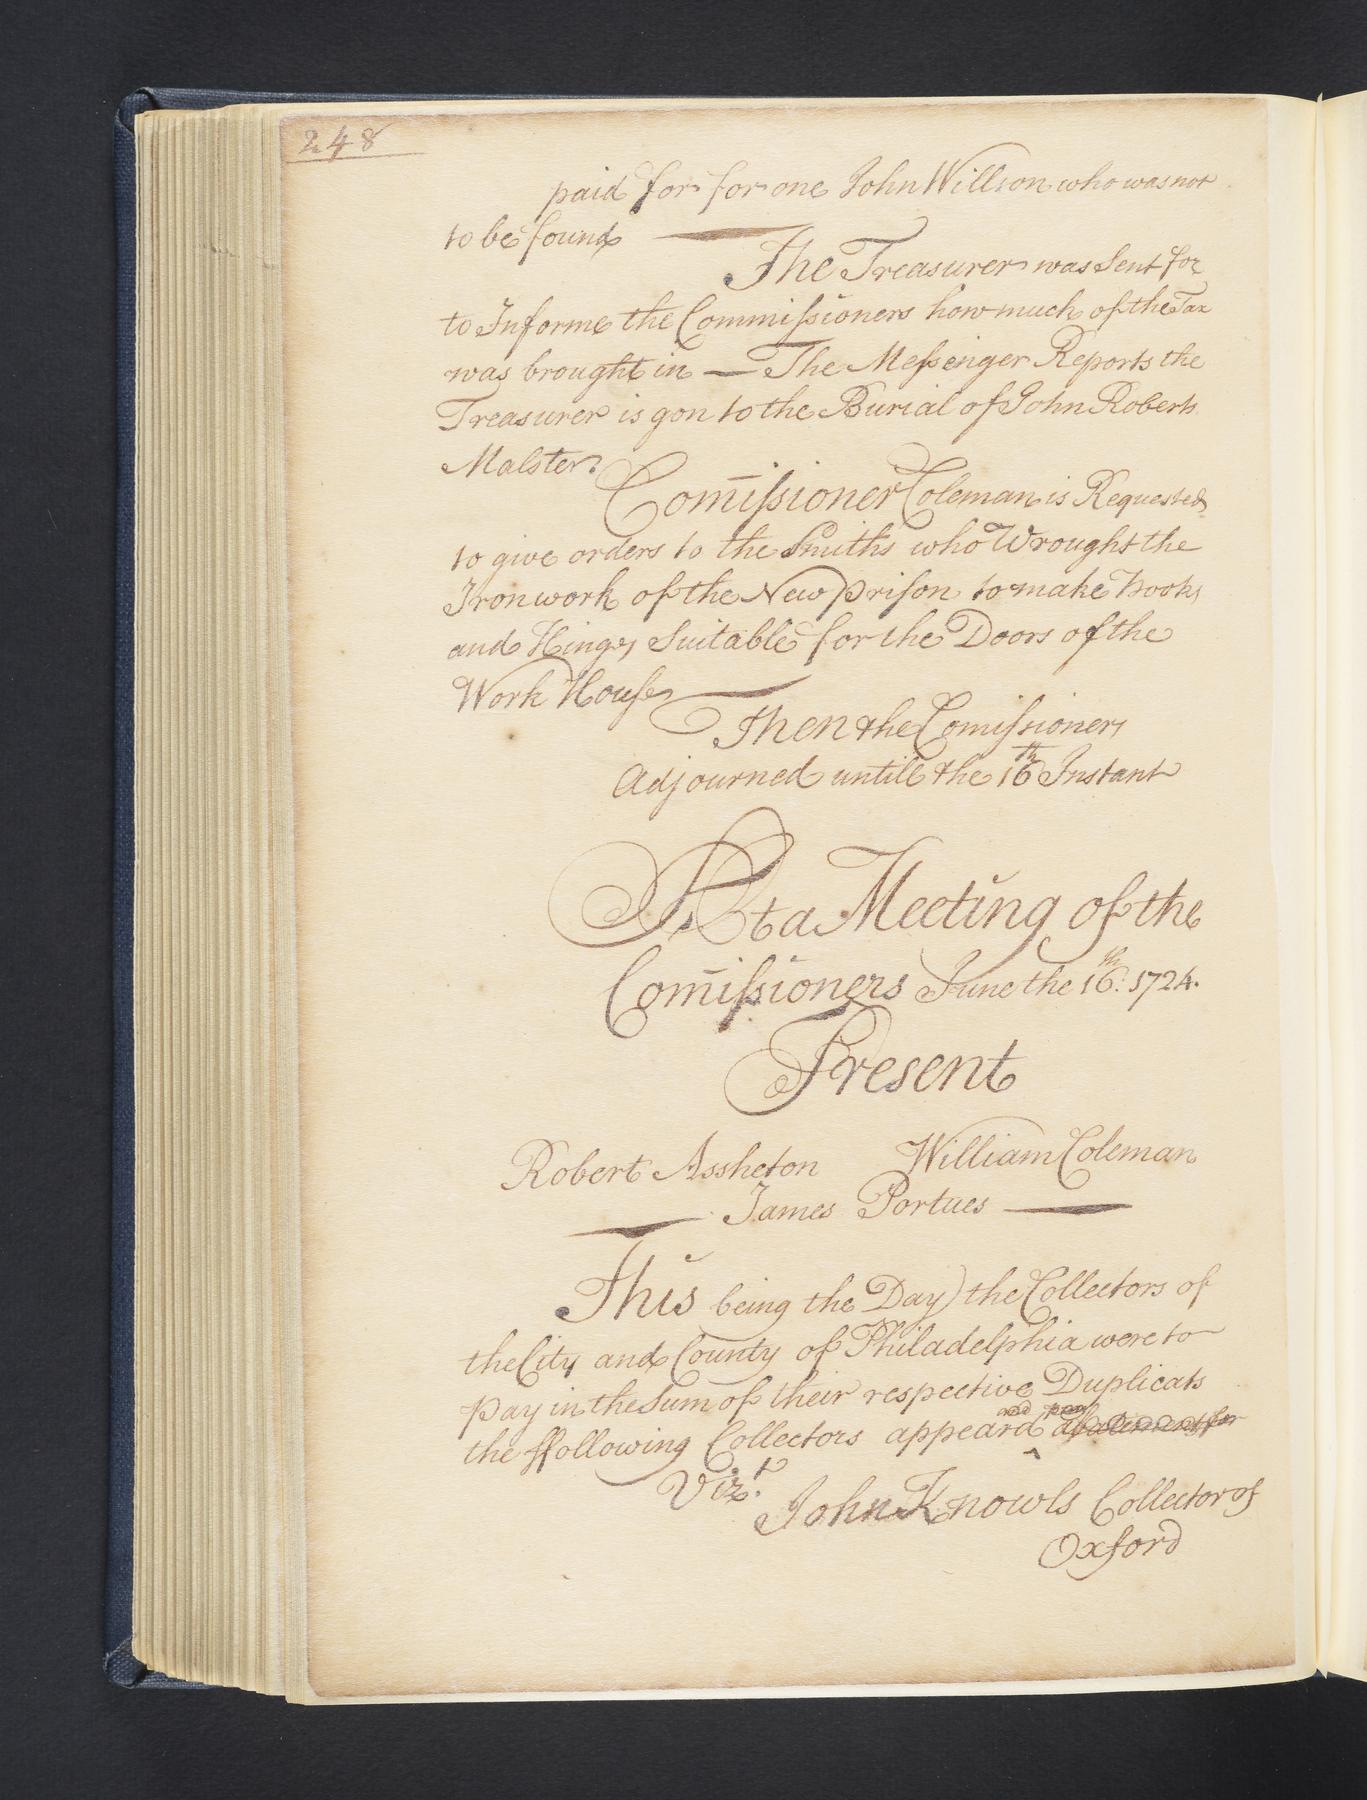 248
paid for for one John Willson who was not
to be found
The Treasurer was Sent for
to Informe the Commissioners how much of the Tax
was brought in — The Messenger Reports the
Treasurer is gon to the Burial of John Roberts
Malster.
Com̄issioner Coleman is Requested
to give orders to the Smiths who Wrought the
Ironwork of the New prison to make Hooks
and Hinges Suitable for the Doors of the
Work House
Then the Comissioners
Adjourned untill the 16th Instant
At a Meeting of the
Com̄issioners June the 16th: 1724.
Present
Robert Assheton William Coleman
James Portues
This being the Day the Collectors of
the City and County of Philadelphia were to
pay in the Sum of their respective Duplicats
and pay
the ffollowing Collectors appeard abatement for
Vizt.
John Knowls Collector of
Oxford